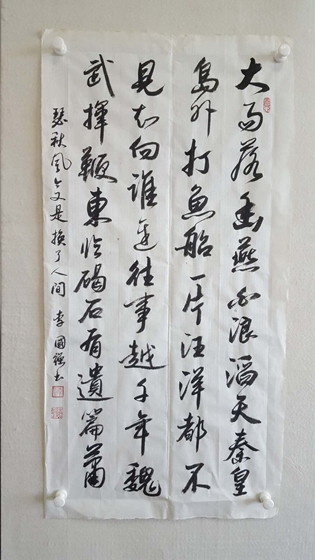 大雨落幽燕白浪滔天秦皇
島外打魚船一片汪洋都不
見知向誰边往事越千年魏
武揮鞭東临碣石有遺篇蕭
瑟秋风今又是换了人间 李國強书